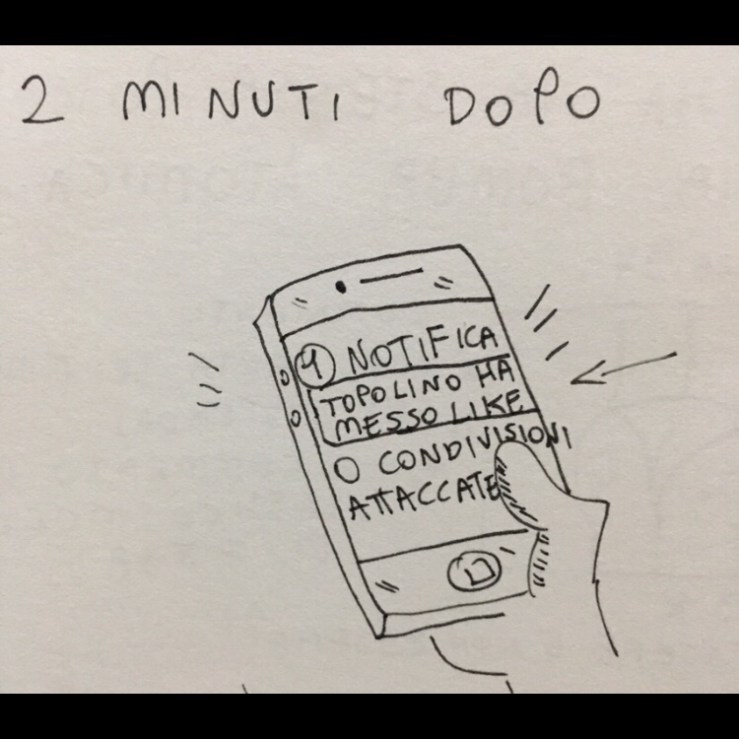 2 MINUTI DOPO
1 NOTIFICA
TOPOLINO HA
MESSO LIKE
0 CONDIVISIONI
ATTACCATE